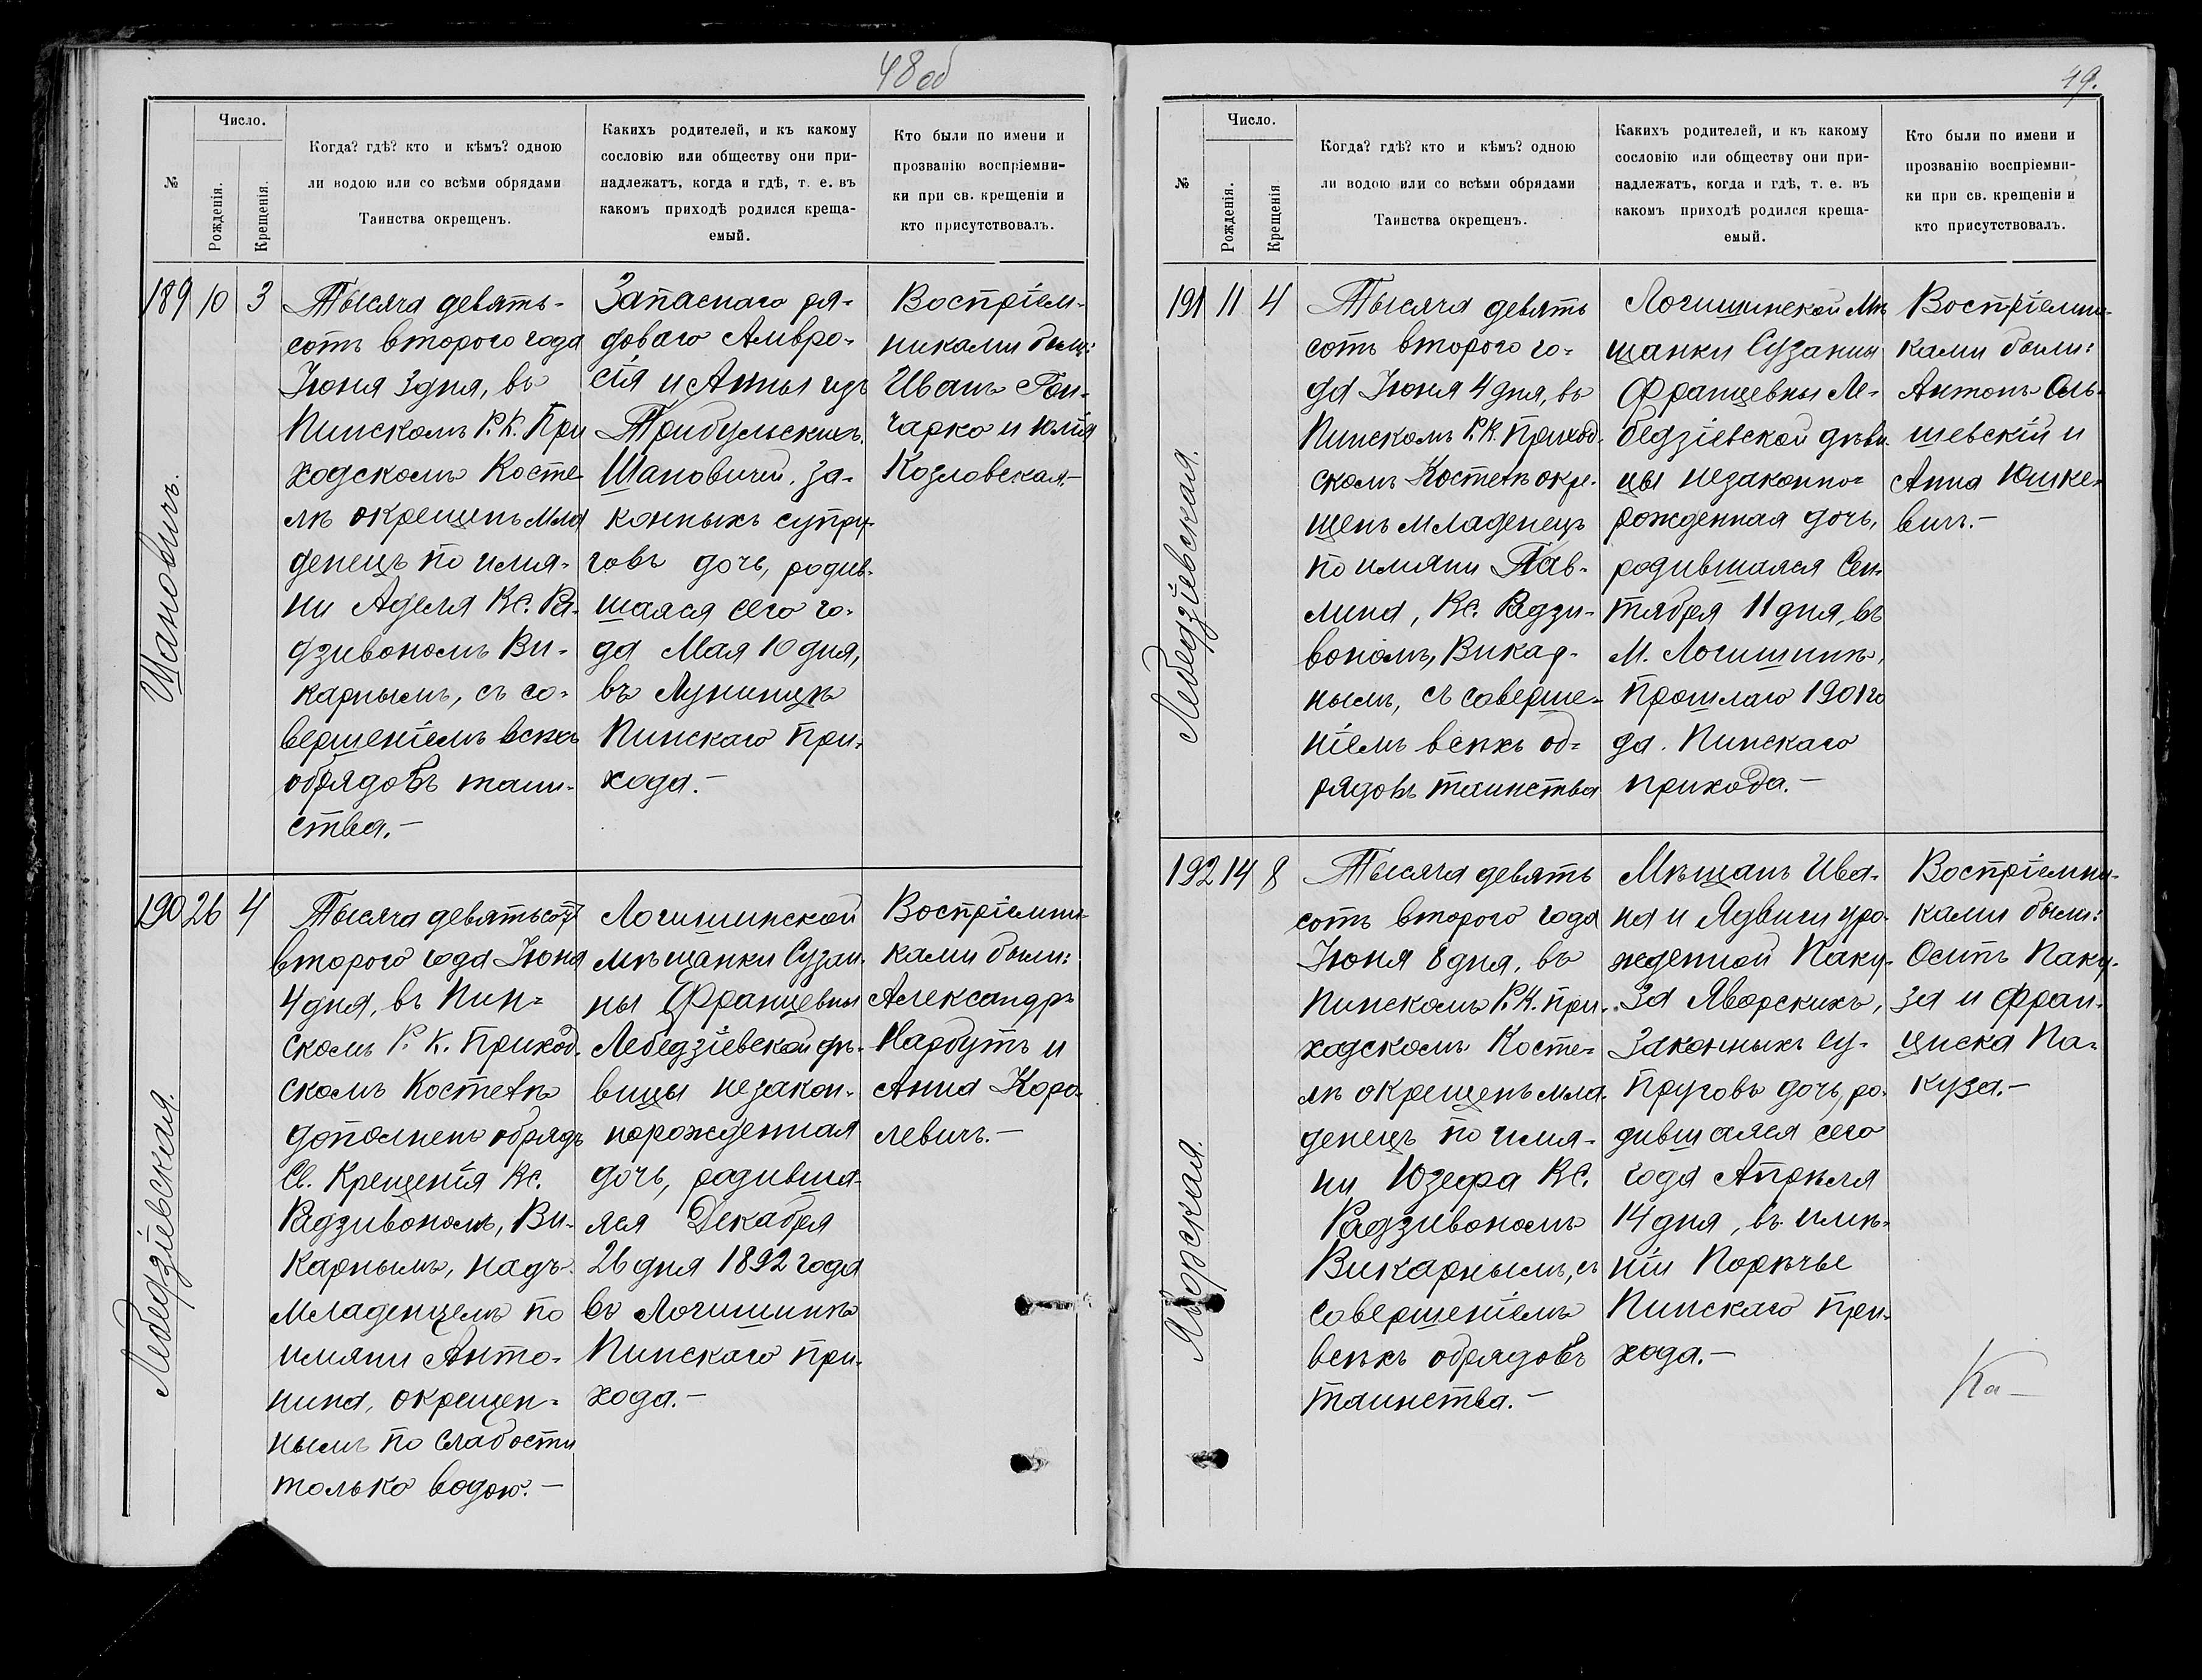 48 об
№
Число.
Рожденія.
Крещенія.
Когда? гдѣ? кто и кѣмъ? одною
ли водою или со всѣми обрядами
Таинства окрещенъ.
Какихъ родителей, и къ какому
сословію или обществу они при-
надлежатъ, когда и гдѣ, т. е. въ
какомъ приходѣ родился креща-
емый.
Кто были по имени и
прозванію воспріемни-
ки при св. крещеніи и
кто присутствовалъ.
189 10 3
Шановичъ.
Тысяча девять-
сотъ второго года
Іюня 3 дня, въ
Пинскомъ Р. К. При
ходскомъ Косте-
лѣ окрещенъ мла
денецъ по имя-
ни Аделя Кс. Ра-
дзивономъ Ви-
карнымъ, съ со-
вершеніемъ всѣхъ
обрядовъ таин-
ства.—
Запаснаго ря-
доваго Амвро-
сія и Анны изъ
Трибульскихъ
Шановичей, за-
конныхъ супру-
говъ дочь, родив-
шаяся сего го-
да Мая 10 дня,
въ Лунинцѣ
Пинскаго При-
хода.—
Воспріем-
никами были:
Иванъ Гон-
чарко и Юлія
Козловская.—
190 26 4
Лебедзіевская.
Тысяча девятьсотъ
второго года Іюня
4 дня, въ Пин-
скомъ Р. К. Приход-
скомъ Костелѣ
дополненъ обрядъ
Св. Крещенія Кс.
Радзивономъ, Ви-
карнымъ, надъ
младенцемъ по
имяни Анто-
нина, окрещен-
нымъ по слабости
только водою.—
Логишинской
мѣщанки Сузан-
ны Францевны
Лебедзіевской дѣ-
вицы незакон-
норожденная
дочь, родивша-
яся Декабря
26 дня 1892 года
въ Логишинѣ
Пинскаго При-
хода.—
Воспріемни-
ками были:
Александръ
Нарбутъ и
Анна Коро-
левичъ.—
49.
№
Число.
Рожденія.
Крещенія
Когда? гдѣ? кто и кѣмъ? одною
ли водою или со всѣми обрядами
Таинства окрещенъ.
Какихъ родителей, и къ какому
сословію или обществу они при-
надлежатъ, когда и гдѣ, т. е. въ
какомъ приходѣ родился креща-
емый.
Кто были по имени и
прозванію воспріемни-
ки при св. крещеніи и
кто присутствовалъ.
191 11 4
Лебедзіевская.
Тысяча девять
сотъ второго го-
да Іюня 4 дня, въ
Пинскомъ Р. К. Приход-
скомъ Костелѣ окре-
щенъ младенецъ
по имяни Пав-
лина, Кс. Радзи-
вономъ, Викар-
нымъ, съ соверше-
ніемъ всѣхъ об-
рядовъ таинства
Логишинской Мѣ
щанки Сузанны
Францевны Ле-
бедзіевской дѣви
цы незаконно-
рожденная дочь,
родившаяся Сен-
тября 11 дня, въ
М. Логишинѣ,
Прошлаго 1901 го
да. Пинскаго
прихода.—
Воспріемни-
ками были:
Антонъ Оль-
шевскій и
Анна Юшке-
вичъ.—
192 14 8
Яворская.
Тысяча девять
сотъ второго года
Іюня 8 дня, въ
Пинскомъ Р. К. При-
ходскомъ Косте-
лѣ окрещенъ мла-
денецъ по имя-
ни Юзефа Кс.
Радзивономъ
Викарнымъ, съ
совершеніемъ
всѣхъ обрядовъ
таинства.—
Мѣщанъ Ива-
на и Ядвиги уро-
жденной Паку-
за Яворскихъ,
Законныхъ Су-
пруговъ дочь, ро-
дившаяся сего
года Апрѣля
14 дня, въ имѣ-
ніи Порѣчье
Пинскаго При-
хода.—
Воспріемни-
ками были:
Осипъ Паку-
за и Фран-
циска Па-
куза.—
Ка—